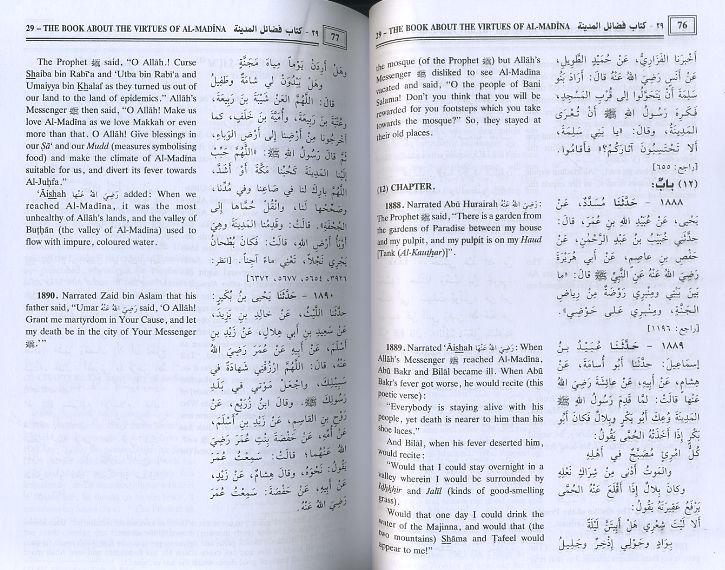 29 – THE BOOK ABOUT THE VIRTUES OF AL-MADÎNA ٢٩ - كتاب فضائل المدينة 76
the mosque (of the Prophet ﷺ) but Allâh's
Messenger ﷺ disliked to see Al-Madîna
vacated and said, "O the people of Bani
Salama! Don't you think that you will be
rewarded for your footsteps which you take
towards the mosque?" So, they stayed at
their old places.
(12) CHAPTER.
1888. Narrated Abu Hurairah رَضِيَ اللهُ عَنْهُ:
The Prophet ﷺ said, "There is a garden from
the gardens of Paradise between my house
and my pulpit, and my pulpit is on my Haud
[Tank (Al-Kauthar)]".
1889. Narrated 'Âishah رَضِيَ اللهُ عَنْهَا: When
Allâh's Messenger ﷺ reached Al-Madîna,
Abu Bakr and Bilâl became ill. When Abu
Bakr's fever got worse, he would recite (this
poetic verse):
"Everybody is staying alive with his
people, yet death is nearer to him than his
shoe laces."
And Bilâl, when his fever deserted him,
would recite:
"Would that I could stay overnight in a
valley wherein I would be surrounded by
Idhkhir and Jalîl (kinds of good-smelling
grass).
Would that one day I could drink the
water of the Majinna, and would that (the
two mountains) Shâma and Tafeel would
appear to me!"
أَخْبَرَنَا الفَزَارِيُّ، عَنْ حُمَيْدٍ الطَّوِيلِ،
عَنْ أَنَسٍ رَضِيَ اللهُ عَنْهُ قَالَ: أَرَادَ بَنُو
سَلِمَةَ أَنْ يَتَحَوَّلُوا إِلَى قُرْبِ المَسْجِدِ،
فَكَرِهَ رَسُولُ اللهِ ﷺ أَنْ تُعْرَى
المَدِينَةُ، وقَالَ: «يَا بَنِي سَلِمَةَ،
أَلَا تَحْتَسِبُونَ آثَارَكُمْ؟» فَأَقَامُوا.
[راجع: ٦٥٥]
(١٢) بابٌ:
١٨٨٨ - حَدَّثَنَا مُسَدَّدٌ، عَنْ
يَحْيَى، عَنْ عُبَيْدِ اللهِ بْنِ عُمَرَ، قَالَ:
حَدَّثَنِي خُبَيْبُ بْنُ عَبْدِ الرَّحْمٰنِ، عَنْ
حَفْصِ بنِ عَاصِمٍ، عَنْ أَبِي هُرَيْرَةَ
رَضِيَ اللهُ عَنْهُ عَنِ النَّبِيِّ ﷺ قَالَ: «مَا
بَيْنَ بَيْتِي ومِنْبَرِي رَوْضَةٌ مِنْ رِيَاضِ
الجَنَّةِ، ومِنْبَرِي عَلَى حَوْضِي».
[راجع: ١١٩٦]
١٨٨٩ - حَدَّثَنَا عُبَيْدُ بنُ
إِسْمَاعِيلَ: حَدَّثَنَا أَبُو أُسَامَةَ، عَنْ
هِشَامٍ، عَنْ أَبِيهِ، عَنْ عَائِشَةَ رَضِيَ
اللهُ عَنْهَا قَالَتْ: لَمَّا قَدِمَ رَسُولُ اللهِ ﷺ
المَدِينَةَ وُعِكَ أَبُو بَكْرٍ وبِلَالٌ فَكَانَ أَبُو
بَكْرٍ إِذَا أَخَذَتْهُ الحُمَّى يَقُولُ:
كُلُّ امْرِئٍ مُصَبَّحٌ فِي أَهْلِهِ
والمَوْتُ أَدْنَى مِنْ شِرَاكِ نَعْلِهِ
وكَانَ بِلَالٌ إِذَا أَقْلَعَ عَنْهُ الحُمَّى
يَرْفَعُ عَقِيرَتَهُ يَقُولُ:
أَلَا لَيْتَ شِعْرِي هَلْ أَبِيتَنَّ لَيْلَةً
بِوَادٍ وحَوْلِي إِذْخِرٌ وجَلِيلُ
29 – THE BOOK ABOUT THE VIRTUES OF AL-MADÎNA ٢٩ - كتاب فضائل المدينة 77
The Prophet ﷺ said, "O Allâh! Curse
Shaiba bin Rabî'a and 'Utba bin Rabî'a and
Umaiyya bin Khalaf as they turned us out of
our land to the land of epidemics." Allâh's
Messenger ﷺ then said, "O Allâh! Make us
love Al-Madîna as we love Makkah or even
more than that. O Allâh! Give blessings in
our Sâ' and our Mudd (measures symbolising
food) and make the climate of Al-Madîna
suitable for us, and divert its fever towards
Al-Juhfa."
'Âishah رَضِيَ اللهُ عَنْهَا added: When we
reached Al-Madîna, it was the most
unhealthy of Allâh's lands, and the valley of
Buthân (the valley of Al-Madîna) used to
flow with impure, coloured water.
1890. Narrated Zaid bin Aslam that his
father said, "Umar رَضِيَ اللهُ عَنْهُ said, 'O Allâh!
Grant me martyrdom in Your Cause, and let
my death be in the city of Your Messenger
ﷺ.'"
وهَلْ أَرِدَنْ يَوْماً مِيَاهَ مَجَنَّةٍ
وهَلْ يَبْدُوَنْ لِي شَامَةٌ وطَفِيلُ
قَالَ: اللَّهُمَّ الْعَنْ شَيْبَةَ بْنَ رَبِيعَةَ،
وعُتْبَةَ بْنَ رَبِيعَةَ، وأُمَيَّةَ بْنَ خَلَفٍ، كَمَا
أَخْرَجُونَا مِنْ أَرْضِنَا إِلَى أَرْضِ الوَبَاءِ،
ثُمَّ قَالَ رَسُولُ اللهِ ﷺ: «اللَّهُمَّ حَبِّبْ
إِلَيْنَا المَدِينَةَ كَحُبِّنَا مَكَّةَ أَوْ أَشَدَّ،
اللَّهُمَّ بَارِكْ لَنَا فِي صَاعِنَا وفي مُدِّنَا،
وصَحِّحْهَا لَنَا، وانْقُلْ حُمَّاهَا إِلَى
الجُحْفَةِ». قَالَتْ: وقَدِمْنَا المَدِينَةَ وهِيَ
أَوْبَأُ أَرْضِ اللهِ، قَالَتْ: فَكَانَ بُطْحَانُ
يَجْرِي نَجْلًا، تَعْنِي مَاءً آجِناً. [انظر:
٣٩٢٦، ٥٦٥٤، ٥٦٧٧، ٦٣٧٢]
١٨٩٠ - حَدَّثَنَا يَحْيَى بْنُ بُكَيْرٍ:
حَدَّثَنَا اللَّيْثُ، عَنْ خَالِدِ بْنِ يَزِيدَ،
عَنْ سَعِيدِ بنِ أَبِي هِلَالٍ، عَنْ زَيْدِ بنِ
أَسْلَمَ، عَنْ أَبِيهِ عَنْ عُمَرَ رَضِيَ اللهُ
عَنْهُ، قَالَ: اللَّهُمَّ ارْزُقْنِي شَهَادَةً فِي
سَبِيلِكَ، واجْعَلْ مَوْتِي فِي بَلَدِ
رَسُولِكَ ﷺ. وقَالَ ابنُ زُرَيْعٍ، عَنْ
رَوْحِ بنِ القَاسِمِ، عَنْ زَيْدِ بْنِ أَسْلَمَ،
عَنْ أُمِّهِ، عَنْ حَفْصَةَ بِنْتِ عُمَرَ رَضِيَ
اللهُ عَنْهُمَا: قَالَتْ: سَمِعْتُ عُمَرَ
يَقُولُ: نَحْوَهُ، وقَالَ هِشَامٌ، عَنْ زَيْدٍ،
عَنْ أَبِيهِ، عَنْ حَفْصَةَ: سَمِعْتُ عُمَرَ
رَضِيَ اللهُ عَنْهُ.